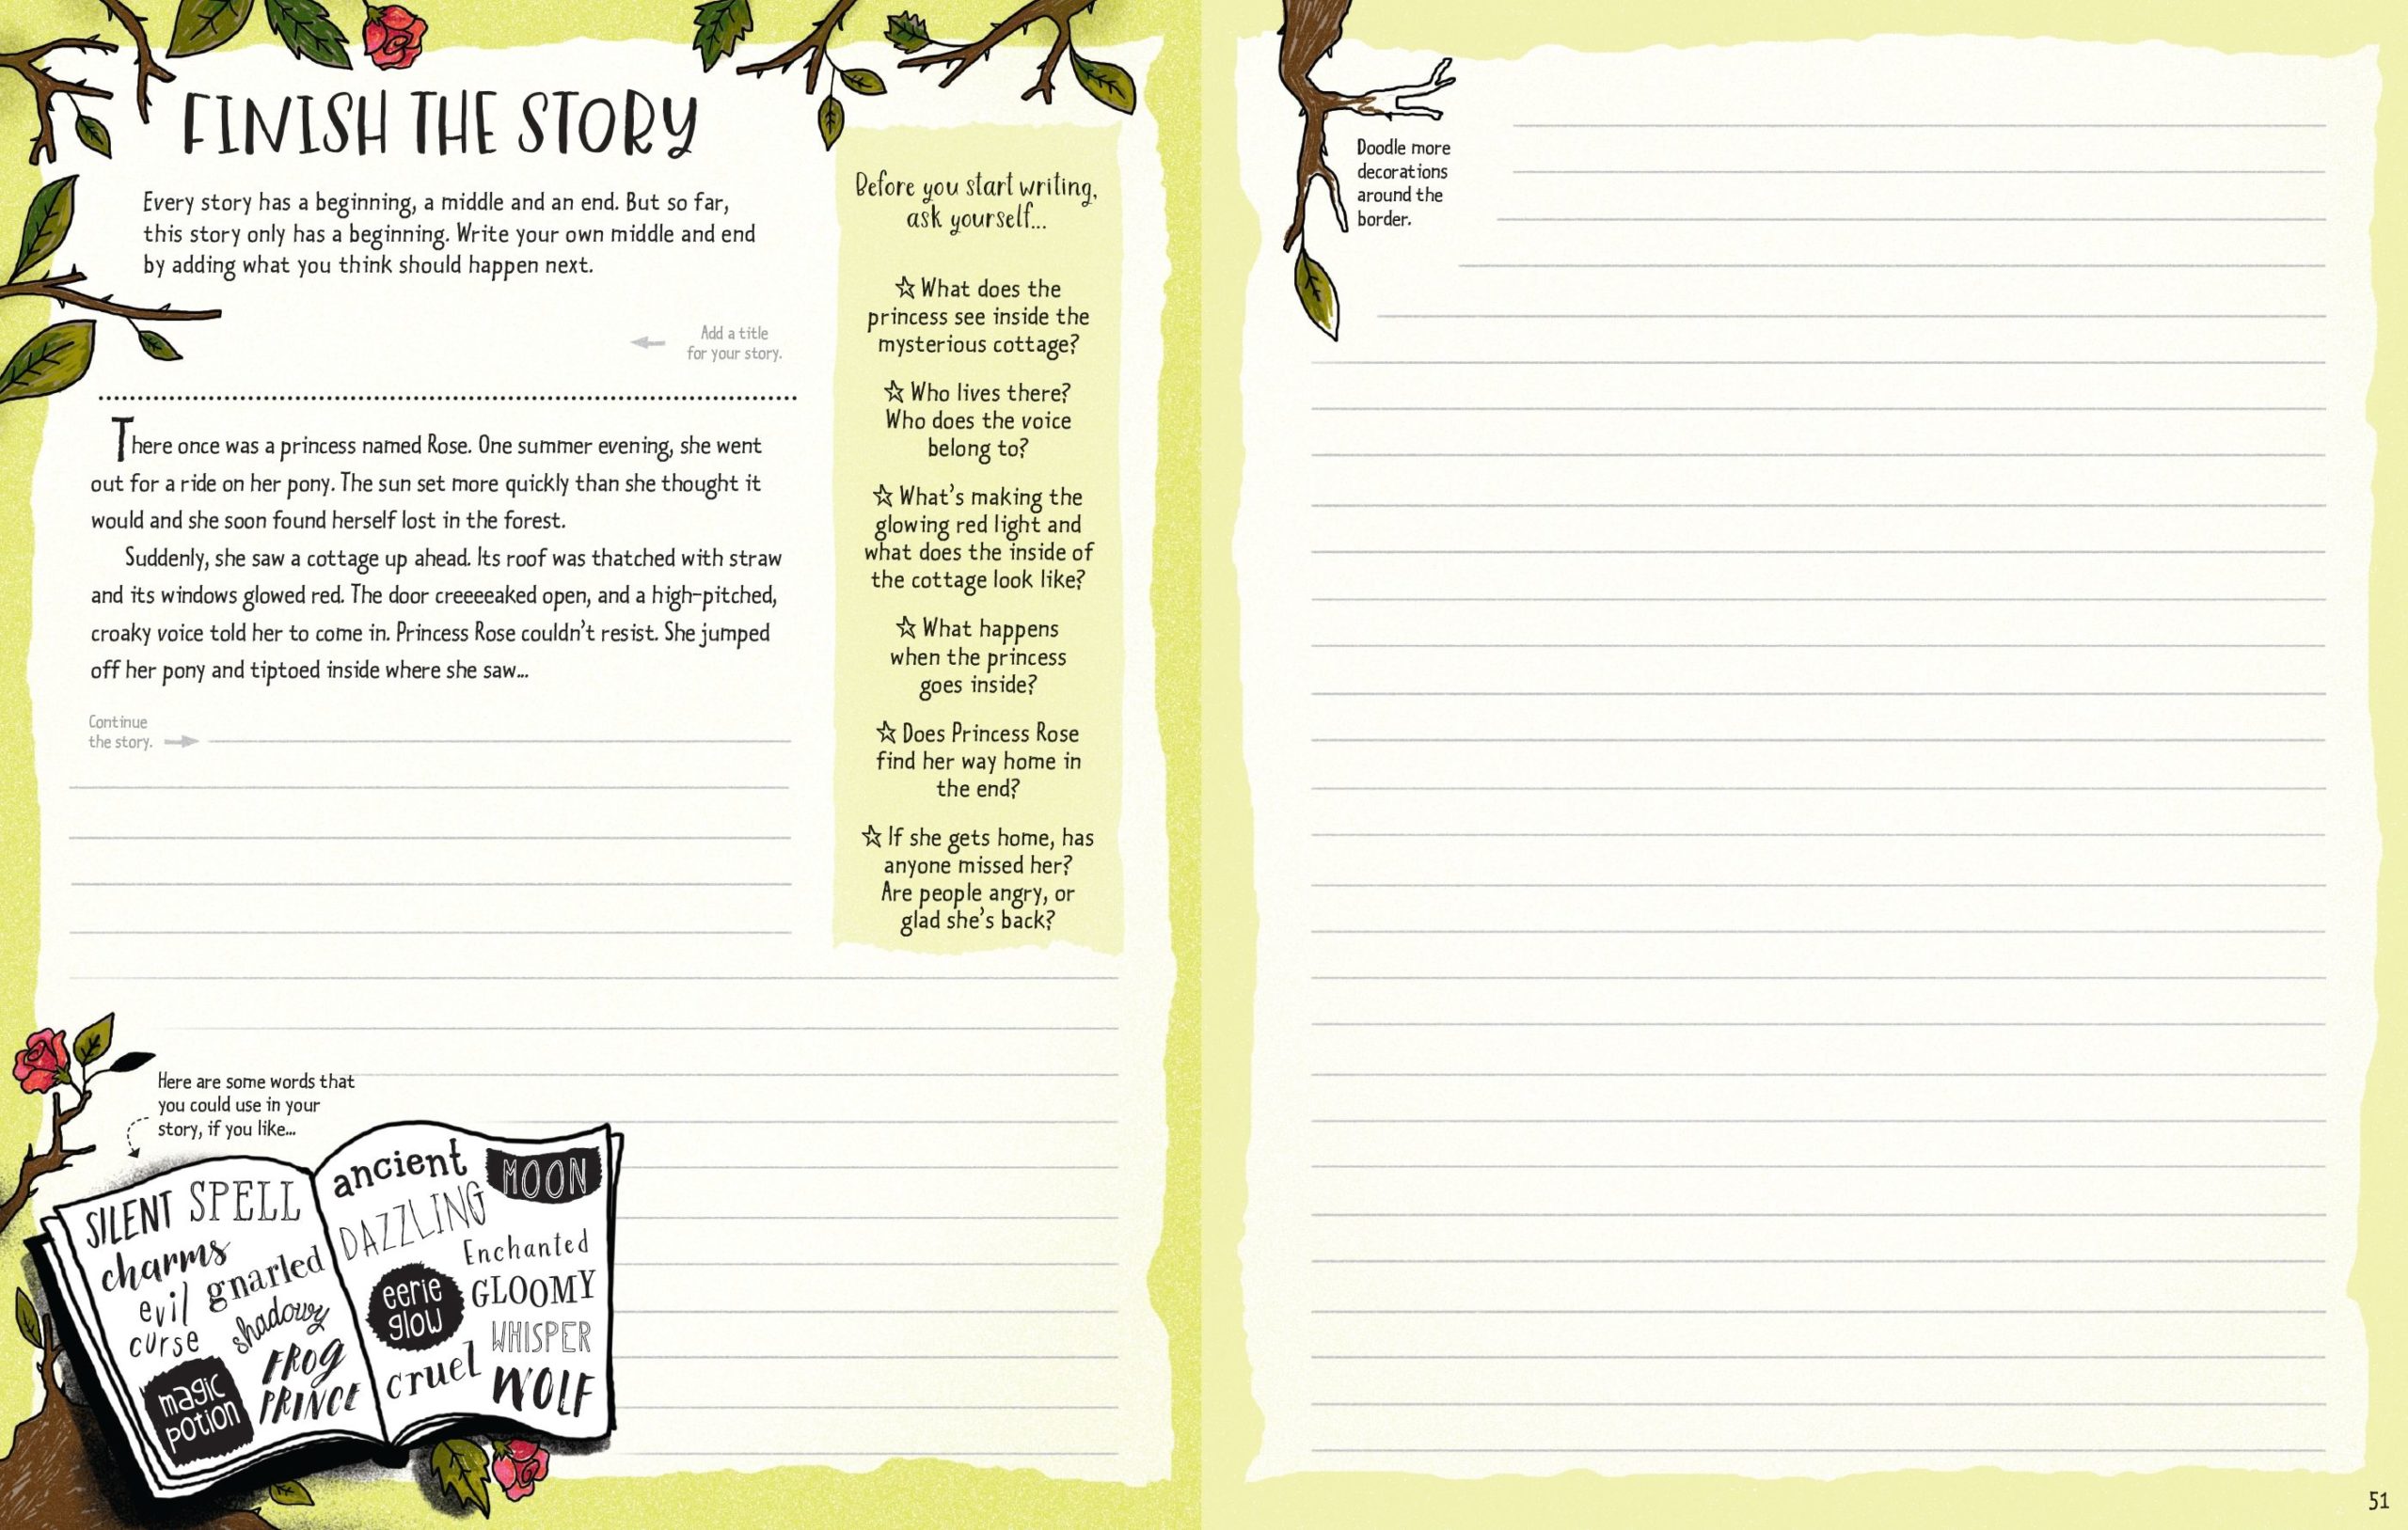 FINISH THE STORY
Every story has a beginning, a middle and an end. But so far,
this story only has a beginning. Write your own middle and end
by adding what you think should happen next.
Add a title
for your story.
There once was a princess named Rose. One summer evening, she went
out for a ride on her pony. The sun set more quickly than she thought it
would and she soon found herself lost in the forest.
Suddenly, she saw a cottage up ahead. Its roof was thatched with straw
and its windows glowed red. The door creeeeaked open, and a high-pitched,
croaky voice told her to come in. Princess Rose couldn't resist. She jumped
off her pony and tiptoed inside where she saw...
Continue
the story.
Before you start writing,
ask yourself...
☆ What does the
princess see inside the
mysterious cottage?
☆ Who lives there?
Who does the voice
belong to?
☆ What's making the
glowing red light and
what does the inside of
the cottage look like?
☆ What happens
when the princess
goes inside?
☆ Does Princess Rose
find her way home in
the end?
☆ If she gets home, has
anyone missed her?
Are people angry, or
glad she's back?
Here are some words that
you could use in your
story, if you like...
SILENT SPELL
charms
evil gnarled
curse shadowy
FROG
PRINCE
magic
potion
ancient MOON
DAZZLING
Enchanted
eerie
glow
GLOOMY
WHISPER
cruel WOLF
Doodle more
decorations
around the
border.
51